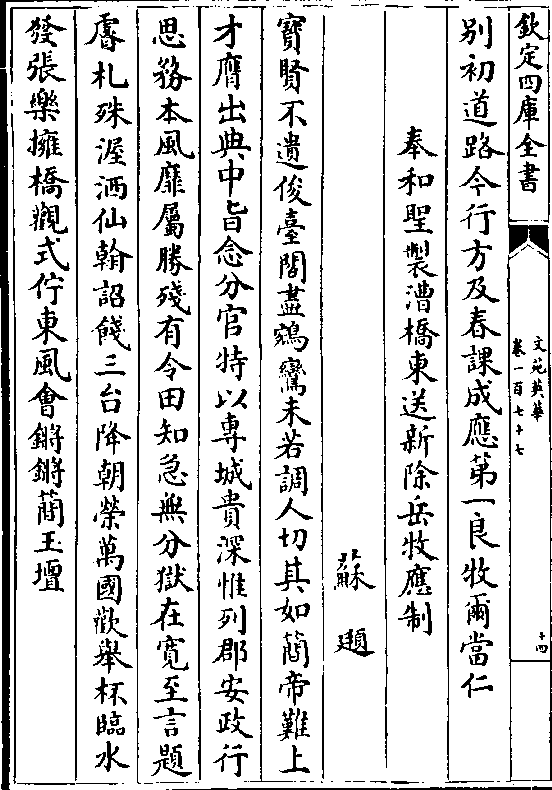 欽定四庫全書
文苑英華
卷一百七十七
十四
别初道路今行方及春課成應第一良牧爾當仁
奉和聖製漕橋東送新除岳牧應制
蘇頲
寶賢不遺俊臺閣盡鵷鸞未若調人切其如蕳帝難上
才膺出典中旨念分官特以專城貴深惟列郡安政行
思務本風靡屬勝殘有令田知急無分獄在寛至言題
睿札殊渥洒仙翰詔餞三台降朝榮萬國歡舉杯臨水
發張樂擁橋觀式佇東風會鏘鏘蕳玉壇